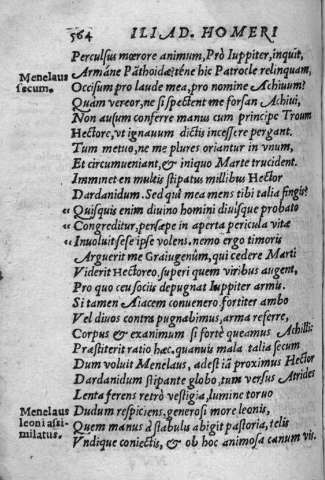 564 ILIAD. HOMERI
Perculsus mœrore animum, Prò Iuppiter, inquit,
Menelaus secum.
Armáne Pãthoidæ, téne hic Patrocle relinquam,
Occisum pro laude mea, pro nomine Achiuum?
Quàm vereor, ne si spectent me forsan Achiui,
Non ausum conferre manus cum principe Troum
Hectore, vt ignauum dictis incessere pergant.
Tum metuo, ne me plures oriantur in vnum,
Et circumueniant, & iniquo Marte trucident.
Imminet en multis stipatus millibus Hector
Dardanidum. Sed quî mea mens tibi talia fingis?
“ Quisquis enim diuino homini diuísque probato
“ Congreditur, persæpe in aperta pericula vitæ
“ Inuoluit sese ipse volens. nemo ergo timoris
Arguerit me Graiugenûm, qui cedere Marti
Viderit Hectoreo, superi quem viribus augent,
Pro quo ceu sociis depugnat Iuppiter armis.
Si tamen Aiacem conuenero. fortiter ambo
Vel diuos contra pugnabimus, arma referre,
Corpus & exanimum si fortè queamus Achilli:
Præstiterit ratio hæc. quanuis mala talia secum
Dum voluit Menelaus, adest iã proximus Hector
Dardanidum stipante globo, tum versus Atrides
Lenta ferens retrò vestigia, lumine toruo
Menelaus leoni assimilatus.
Dudum respiciens, generosi more leonis,
Quem manus à stabulis abigit pastoria, telis
Vndique coniectis, & ob hoc animosa canum vis.